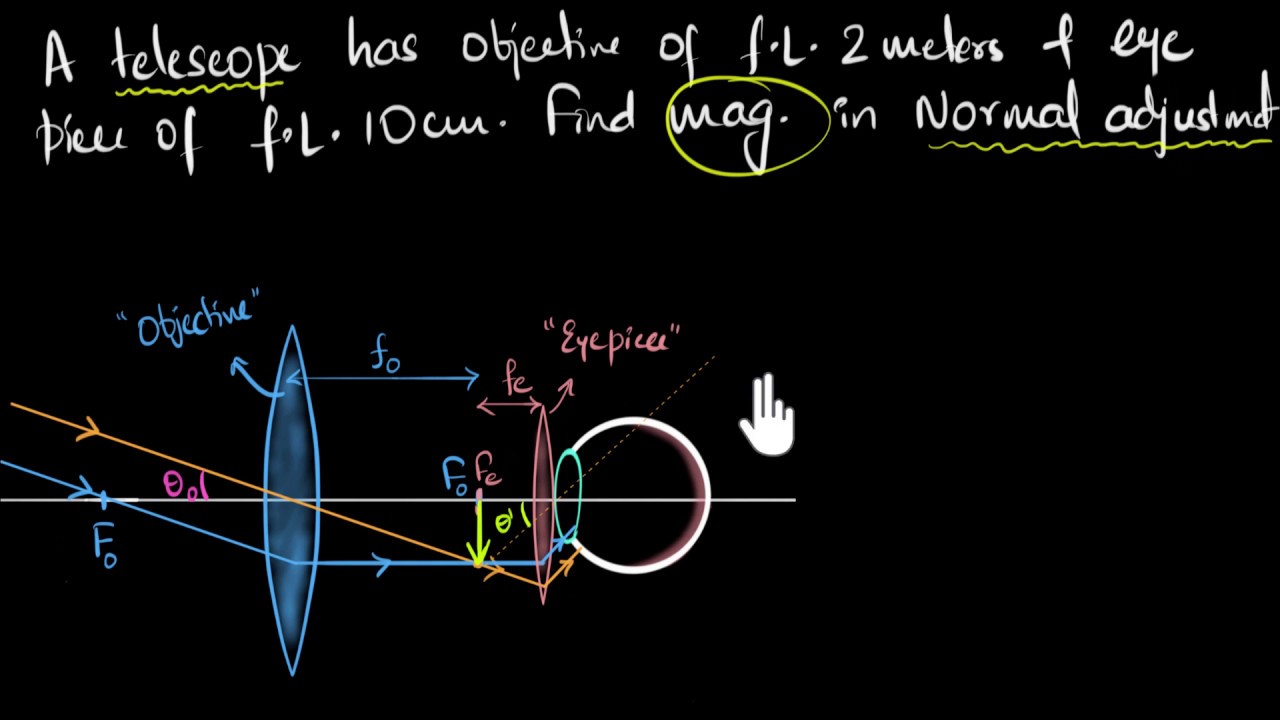 A telescope has objective of f.L. 2 meters & eye
piece of f.L. 10cm. Find mag. in Normal adjustmt
"Objective"
"Eyepiece"
fo
fe
Fo fe
θo
θ'
Fo